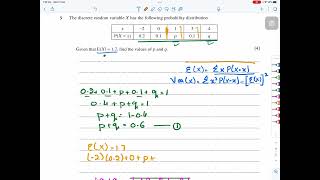 5 The discrete random variable X has the following probability distribution
x -2 0 1 3 4
P(X = x) 0.2 0.1 p 0.1 q
Given that E(X) = 1.7, find the values of p and q.
(4)
E(X) = Σ x P(X=x)
Var(X) = Σx² P(X=x) - [E(X)]²
0.2+0.1+p+0.1+q=1
0.4+p+q=1
p+q=1-0.4
p+q=0.6 —①
E(X)=1.7
(-2)(0.2)+0+p+